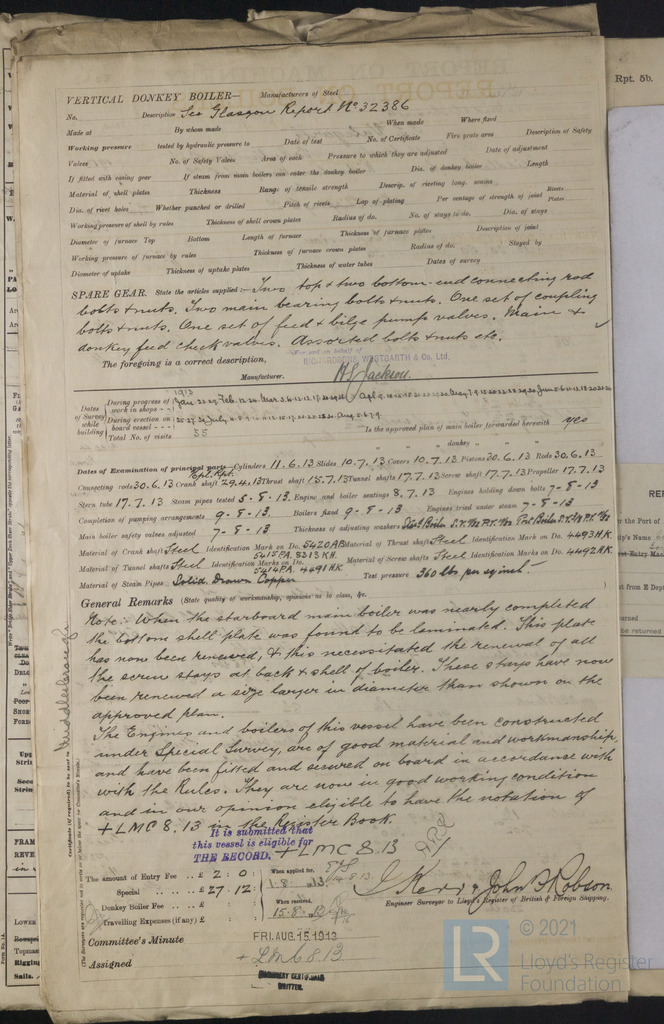 VERTICAL DONKEY BOILER— Manufacturers of Steel
No. Description See Glasgow Report No 32386
Made at By whom made When made Where fixed
Working pressure tested by hydraulic pressure to Date of test No. of Certificate Fire grate area Description of Safety
Valves No. of Safety Valves Area of each Pressure to which they are adjusted Date of adjustment
If fitted with easing gear If steam from main boilers can enter the donkey boiler Dia. of donkey boiler Length
Material of shell plates Thickness Range of tensile strength Descrip. of riveting long. seams
Dia. of rivet holes Whether punched or drilled Pitch of rivets Lap of plating Per centage of strength of joint Rivets Plates
Working pressure of shell by rules Thickness of shell crown plates Radius of do. No. of stays to do. Dia. of stays
Diameter of furnace Top Bottom Length of furnace Thickness of furnace plates Description of joint
Working pressure of furnace by rules Thickness of furnace crown plates Radius of do. Stayed by
Diameter of uptake Thickness of uptake plates Thickness of water tubes Dates of survey
SPARE GEAR. State the articles supplied:— Two top & two bottom end connecting rod
bolts & nuts. Two main bearing bolts & nuts. One set of coupling
bolts & nuts. One set of feed & bilge pump valves. Main &
donkey feed check valves. Assorted bolts & nuts etc.
The foregoing is a correct description,
For and on behalf of
RICHARDSONS WESTGARTH & Co. Ltd.
Manufacturer. Jackson.
1913
Dates of Survey while building
During progress of work in shops - -
During erection on board vessel - - -
Total No. of visits 55
Is the approved plan of main boiler forwarded herewith yes
" " " donkey " " "
Dates of Examination of principal parts—Cylinders 11.6.13 Slides 10.7.13 Covers 10.7.13 Pistons 30.6.13 Rods 30.6.13
Connecting rods 30.6.13 Crank shaft 29.4.13 Thrust shaft 15.7.13 Tunnel shafts 17.7.13 Screw shaft 17.7.13 Propeller 17.7.13
Stern tube 17.7.13 Steam pipes tested 5-8-13 Engine and boiler seatings 8.7.13 Engines holding down bolts 7-8-13
Completion of pumping arrangements 9-8-13 Boilers fixed 9-8-13 Engines tried under steam 7-8-13
Main boiler safety valves adjusted 7-8-13 Thickness of adjusting washers
Material of Crank shaft Steel Identification Mark on Do. Material of Thrust shaft Steel Identification Mark on Do. 4493HK
Material of Tunnel shafts Steel Identification Marks on Do. 5414PA. 4491HK Material of Screw shafts Steel Identification Marks on Do. 4492HK
Material of Steam Pipes Solid Drawn Copper Test pressure 360 lbs per sq inch.
General Remarks (State quality of workmanship, opinions as to class, &c.
Note:- When the starboard main boiler was nearly completed
the bottom shell plate was found to be laminated. This plate
has now been renewed, & this necessitated the renewal of all
the screw stays at back & shell of boiler. These stays have now
been renewed a size larger in diameter than shown on the
approved plan.
The Engines and boilers of this vessel have been constructed
under Special Survey, are of good material and workmanship,
and have been fitted and secured on board in accordance with
with the Rules. They are now in good working condition
and in our opinion eligible to have the notation of
+LMC 8.13 in the Register Book.
It is submitted that
this vessel is eligible for
THE RECORD. +LMC 8.13
The amount of Entry Fee . . £ 2 : 0 :
Special . . £ 27 : 12 :
Donkey Boiler Fee . . £ : :
Travelling Expenses (if any) £ : :
When applied for, 1.8.13
When received, 15.8.13
J Kerr & John Robson
Engineer Surveyor to Lloyd's Register of British & Foreign Shipping.
Committee's Minute FRI. AUG. 15. 1913
Assigned + LMC 8.13
MACHINERY CERTIFICATE
WRITTEN.
Middlesbrough
Certificate (if required) to be sent to
Rpt. 5b.
© 2021
LR
Lloyd's Register
Foundation